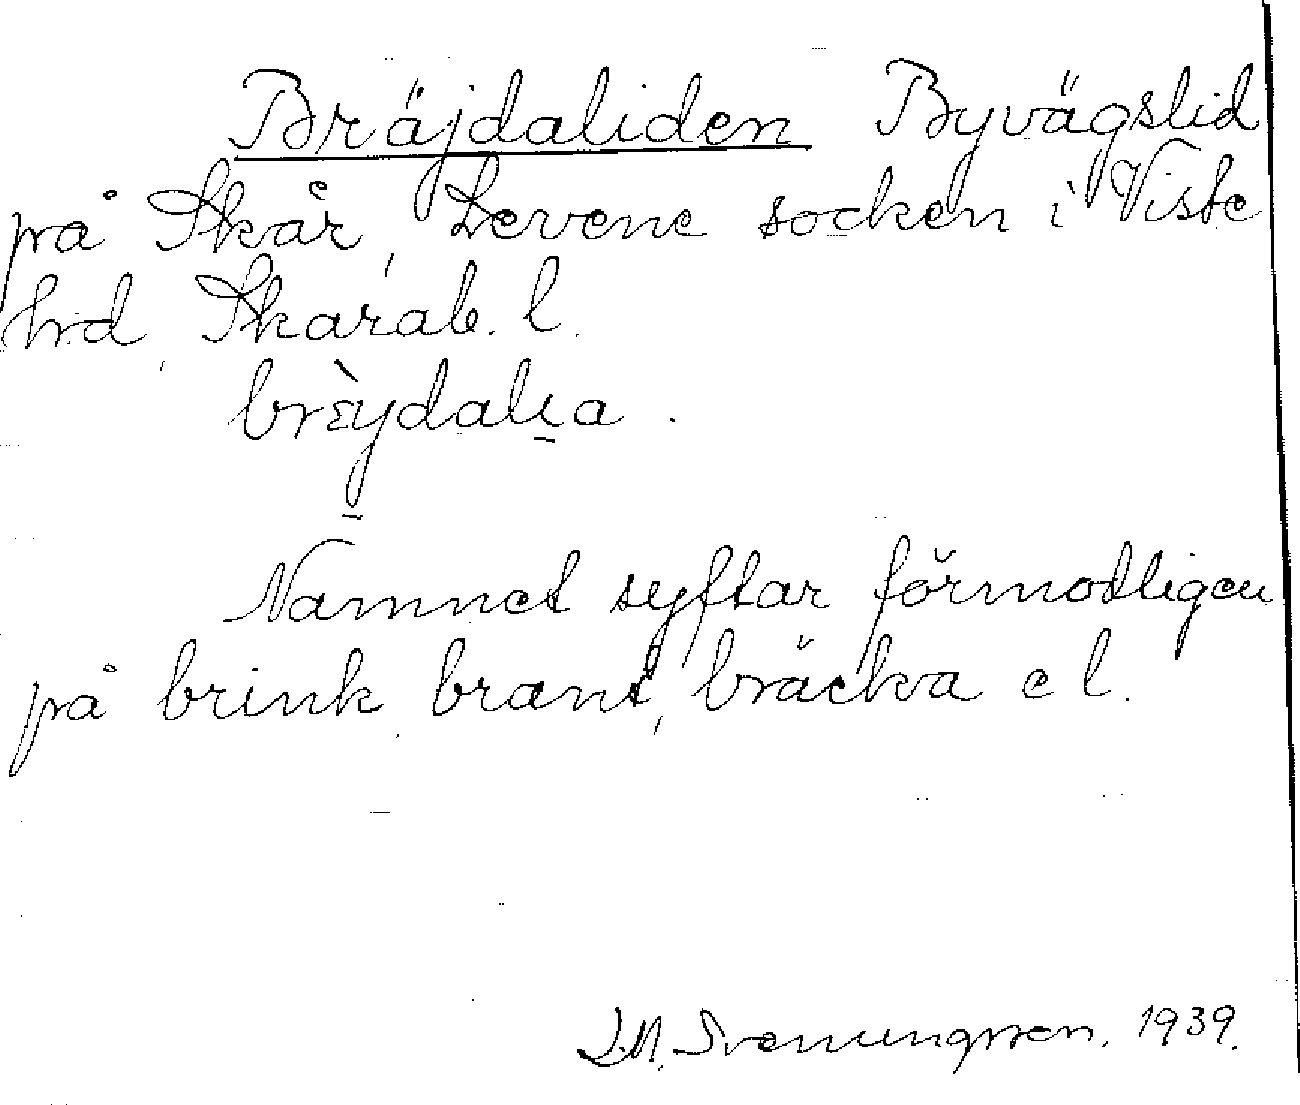 Bräjdaliden Byvägslid
på Skår, Levene socken i Viste
hd, Skarab. l.
brɛ̀y̠dalı̠a.
Namnet syftar förmotligen
på brink, brant, bräcka e l.
L.M. Svenungsson. 1939.